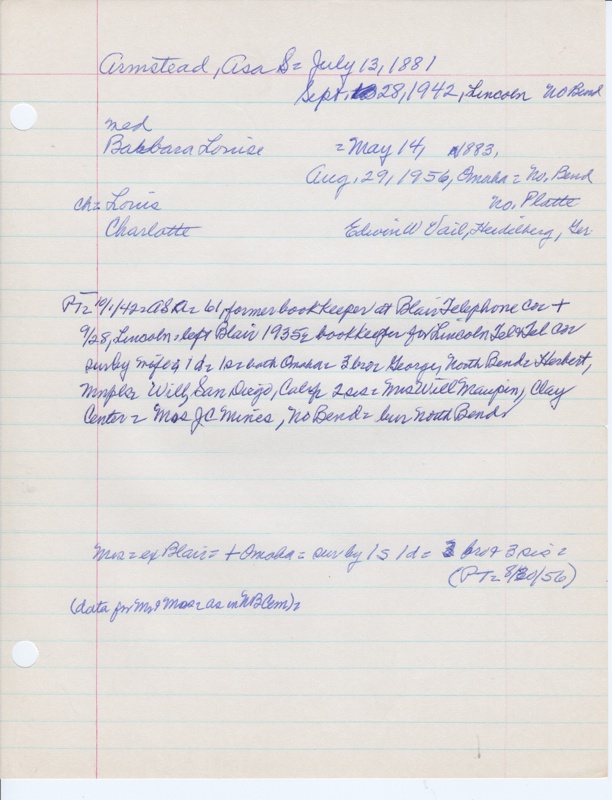 Armstead, Asa S = July 13, 1881
Sept. 28, 1942, Lincoln No Bend
med
Barbara Louise = May 14, 1883,
Aug. 29, 1956, Omaha = No. Bend
ch = Louis No. Platte
Charlotte Edwin W Vail, Heidilberg, Ger
PT = 10/1/42 = AS A = 61, former bookkeeper at Blair Telephone Co = +
9/28, Lincoln = left Blair 1935 = bookkeeper for Lincoln Tel & Tel Co =
surby wife & 1 d = 1 s = both Omaha = 3 bro = George, North Bend = Herbert,
Mnpls = Will, San Diego, Calif = 2 sis = Mrs Will Maupin, Clay
Center = Mrs J C Mines, No Bend = bur North Bend =
Mrs = ex Blair = + Omaha = surby 1 s 1 d = 3 bro & 3 sis =
(PT = 8/30/56)
(data for Mr & Mrs = as in NB Cem) =